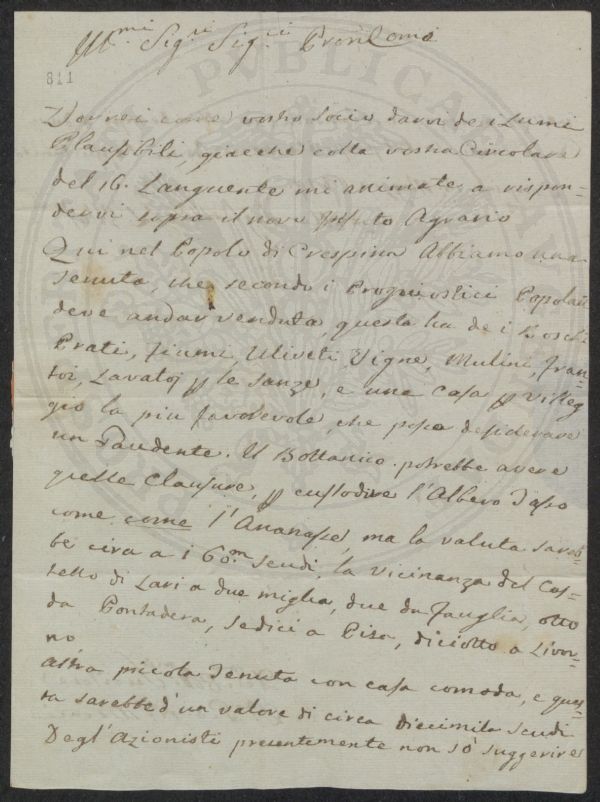 Ill.mi Sig.ri Sig.ri Pron Comi
811
Dovrei come vostro socio darvi de i Lumi
Plausibili, giacche colla vostra Circolare
del 16. Languente mi animate a rispon-
dervi sopra il novo Istituto Agrario
Qui nel Popolo di Crespina Abbiamo una
Tenuta, che secondo i Prognostici Popolari
deve andar venduta, questa ha de i Boschi
Prati, fiumi, Uliveti, Vigne, Mulini, fran-
toi, Lavatoj p le sanze, e una Casa p Villeg
gio la piu favorevole, che possa desiderare
un Studente. Il Bottanico potrebbe avere
quelle Clausure, p custodire l'Albero
come come l'Ananasse, ma la valuta sareb-
be circa a i 60.m scudi, la vicinanza del Cas-
tello di Lari a due miglia, due da Fauglia, otto
da Pontadera, sedici a Pisa, diciotto a Livor-
no
Altra piccola Tenuta con casa comoda, e ques-
ta sarebbe d'un valore di circa Diecimila scudi
Degl'Azionisti presentemente non so suggerire